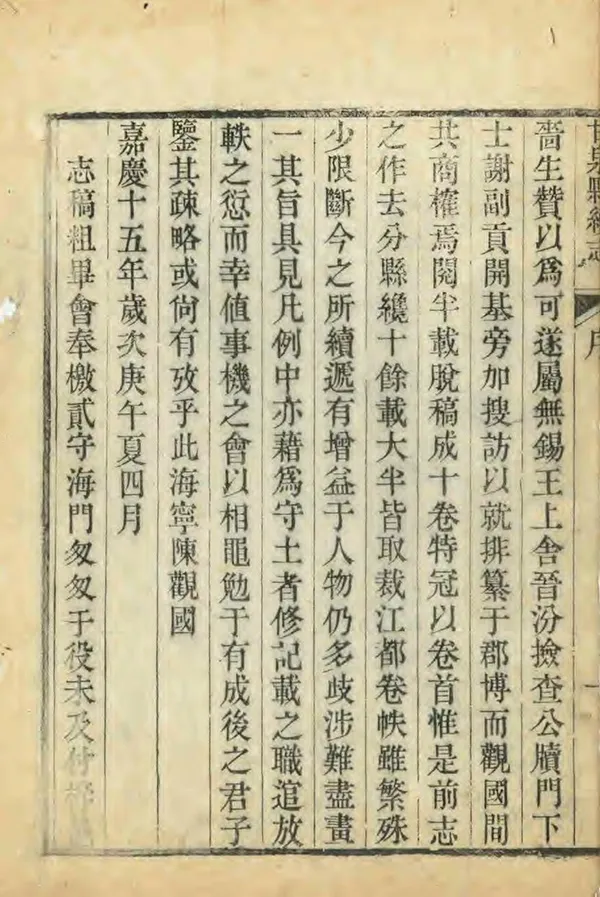 甘泉縣續志
序
一
嗇生贊以爲可遂屬無錫王上舍晉汾撿查公牘門下
士謝副貢開基旁加搜訪以就排纂于郡博而觀國間
共商榷焉閱半載脫稿成十卷特冠以卷首惟是前志
之作去分縣纔十餘載大半皆取裁江都卷帙雖繁殊
少限斷今之所續遞有增益于人物仍多歧涉難盡畫
一其旨具見凡例中亦藉爲守土者修記載之職逭放
軼之愆而幸值事機之會以相黽勉于有成後之君子
鑒其疎略或尙有攷乎此海寧陳觀國
嘉慶十五年歲次庚午夏四月
志稿粗畢會奉檄貳守海門匆匆于役未及付